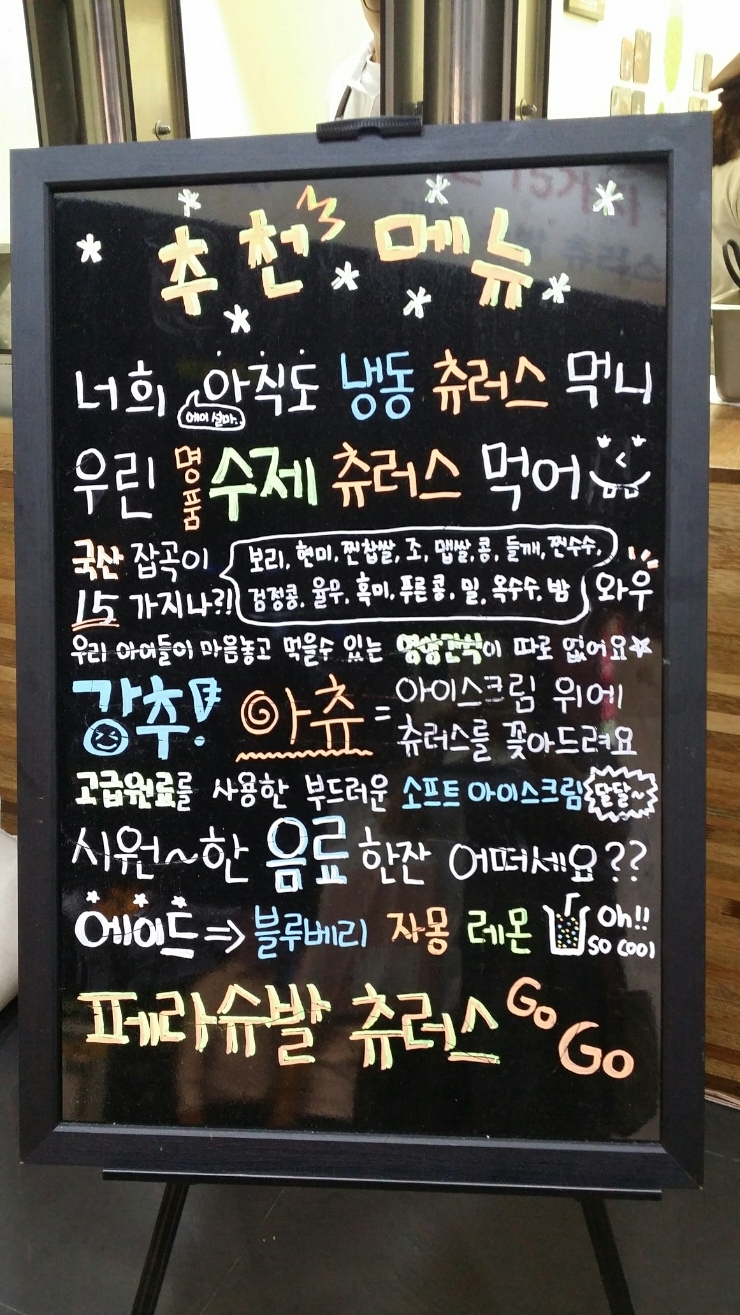 추천 메뉴
너희 아직도 냉동 츄러스 먹니
에이 설마..
우린 명품 수제 츄러스 먹어
국산 잡곡이 15 가지나?!
보리, 현미, 찐찹쌀, 조, 맵쌀, 콩, 들깨, 찐수수,
검정콩, 율무, 흑미, 푸른콩, 밀, 옥수수, 밤
와우
우리 아이들이 마음놓고 먹을수 있는 영양간식이 따로 없어요
강추! 아츄 = 아이스크림 위에
츄러스를 꽂아드려요
고급원료를 사용한 부드러운 소프트 아이스크림 달달~
시원~한 음료 한잔 어떠세요??
에이드 ⇒ 블루베리 자몽 레몬 Oh!!
so cool
페라슈발 츄러스 Go Go